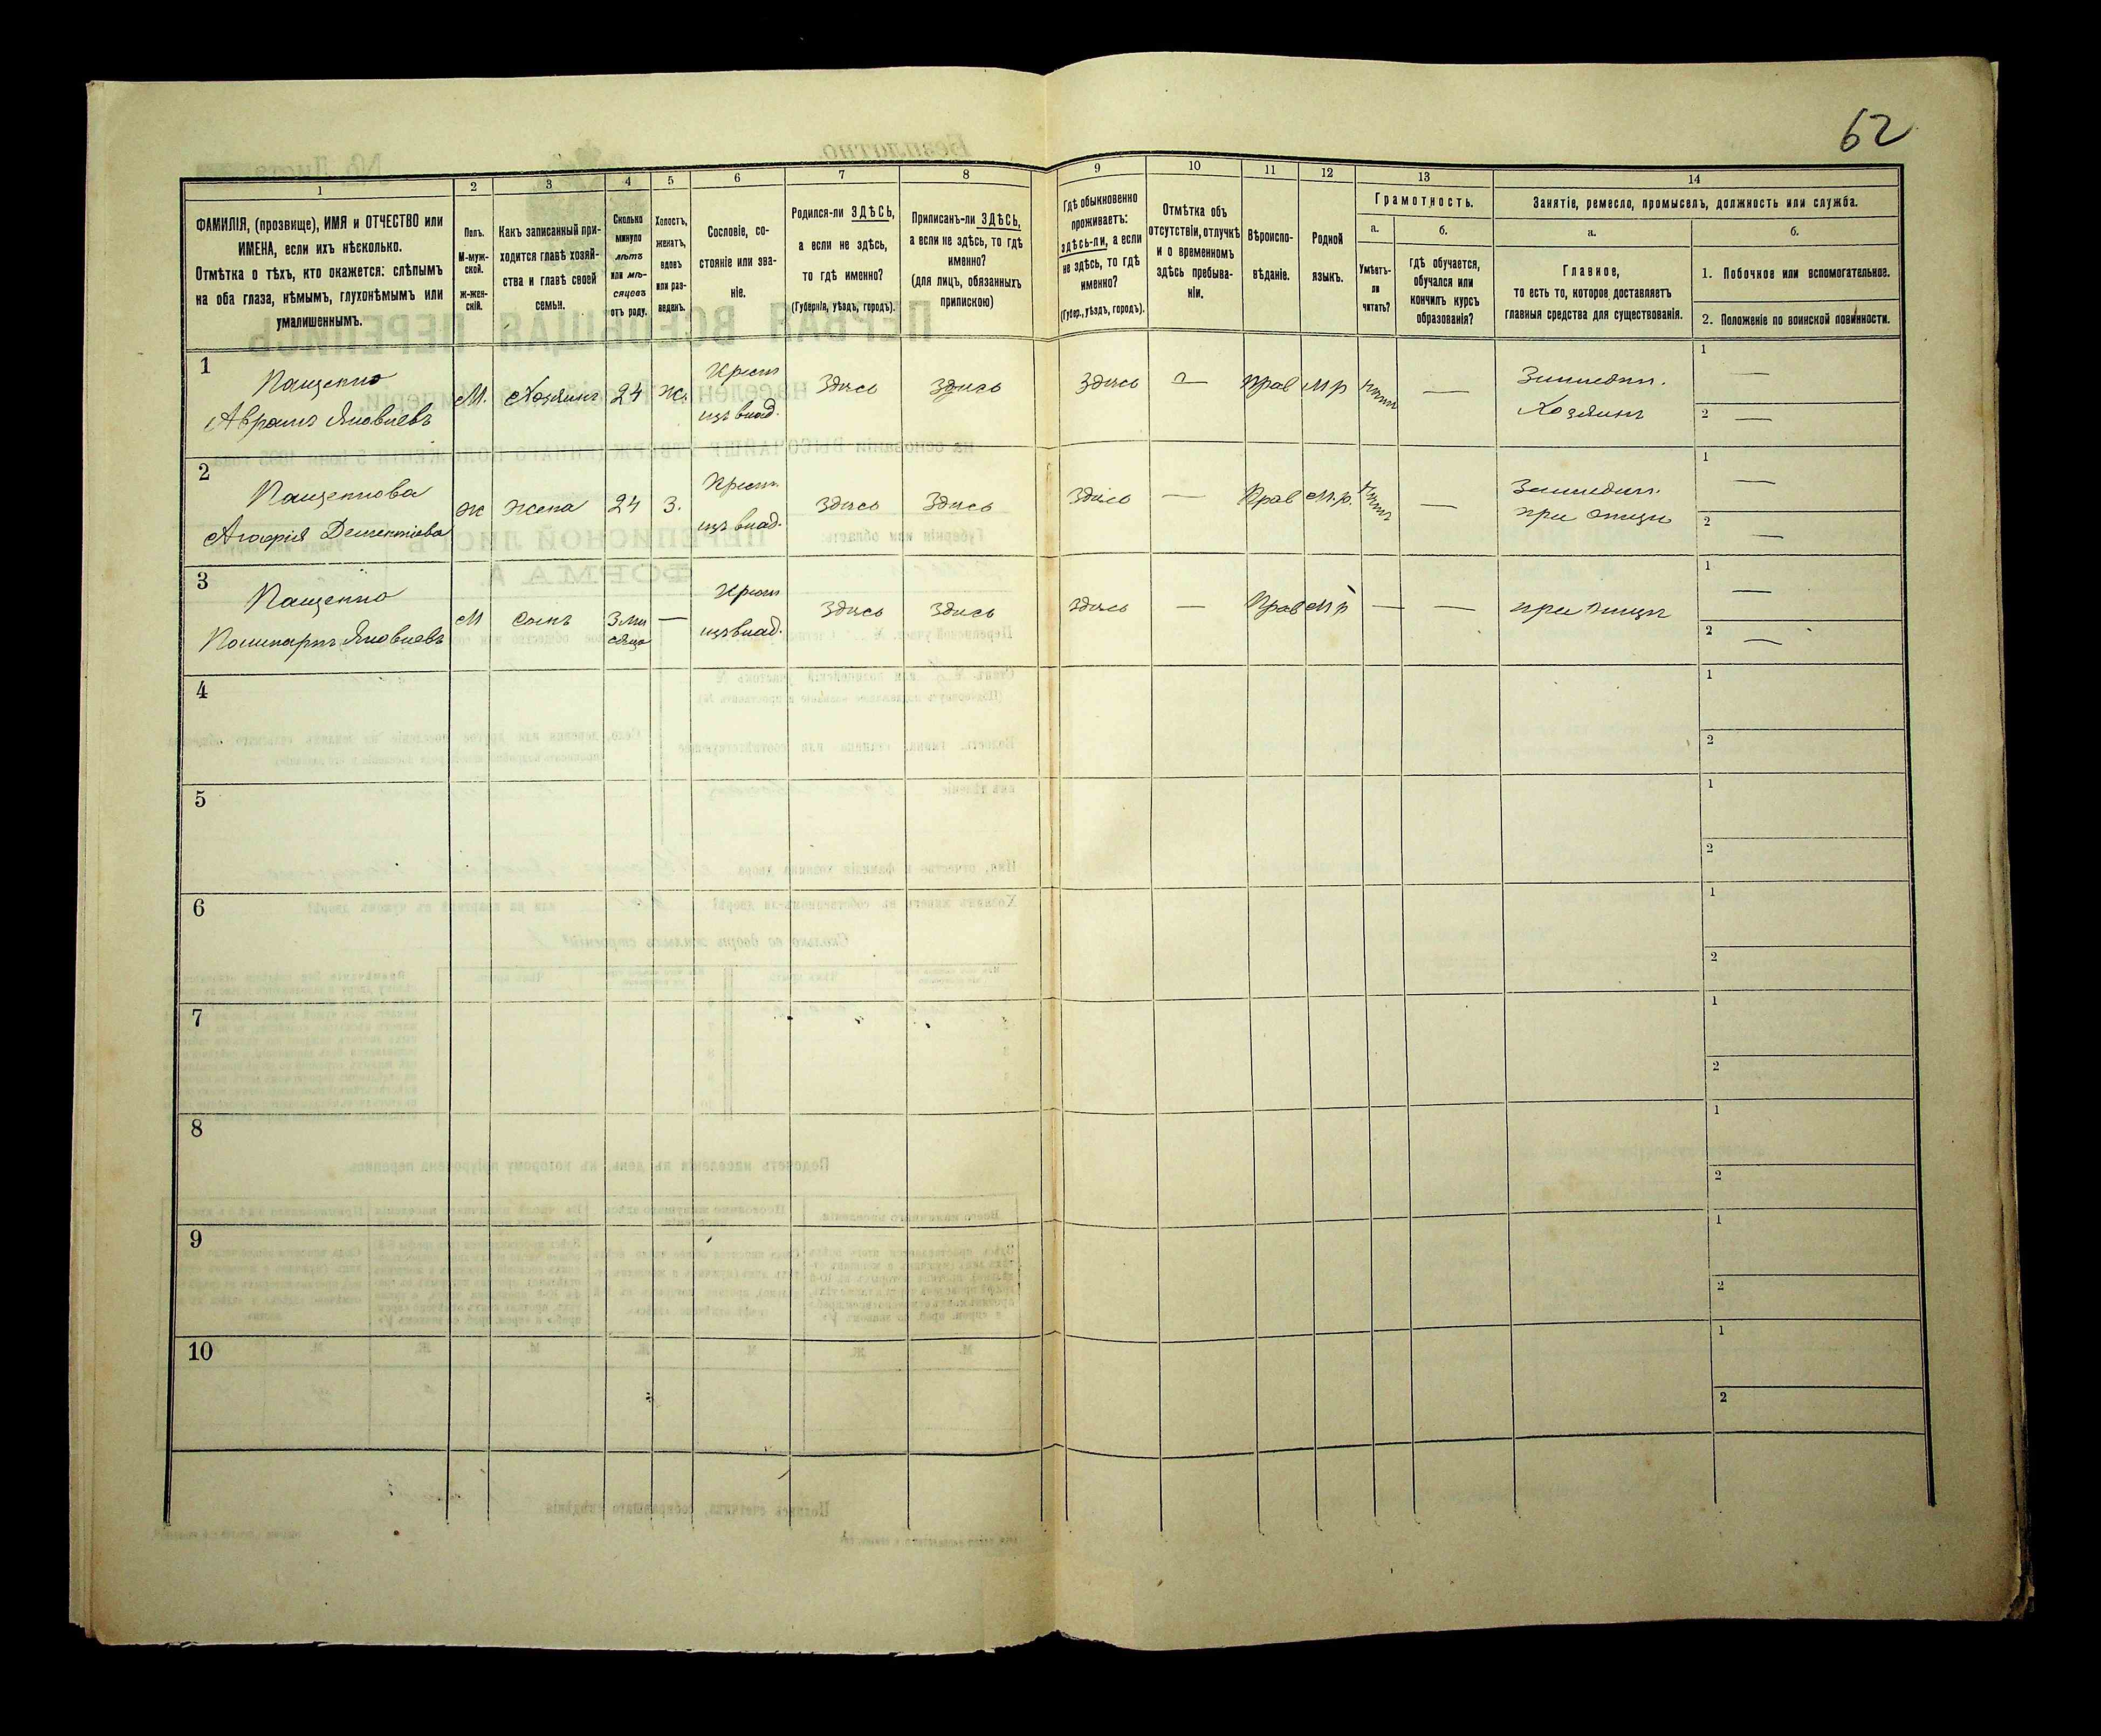 62
1 2 3 4 5 6 7 8 9 10 11 12 13 14
ФАМИЛІЯ, (прозвище), ИМЯ и ОТЧЕСТВО или
ИМЕНА, если ихъ нѣсколько.
Отмѣтка о тѣхъ, кто окажется: слѣпымъ
на оба глаза, нѣмымъ, глухонѣмымъ или
умалишеннымъ.
Полъ.
М-муж-
ской.
Ж-жен-
скій.
Какъ записанный при-
ходится главѣ хозяй-
ства и главѣ своей
семьи.
Сколько
минуло
лѣтъ
или мѣ-
сяцевъ
отъ роду.
Холостъ,
женатъ,
вдовъ
или раз-
веденъ.
Сословіе, со-
стояніе или зва-
ніе.
Родился-ли ЗДѢСЬ,
а если не здѣсь,
то гдѣ именно?
(Губернія, уѣздъ, городъ).
Приписанъ-ли ЗДѢСЬ,
а если не здѣсь, то гдѣ
именно?
(для лицъ, обязанныхъ
припискою)
Гдѣ обыкновенно
проживаетъ:
здѣсь-ли, а если
не здѣсь, то гдѣ
именно?
(Губер., уѣздъ, городъ).
Отмѣтка объ
отсутствіи, отлучкѣ
и о временномъ
здѣсь пребыва-
ніи.
Вѣроиспо-
вѣданіе.
Родной
языкъ.
Грамотность.
а.
Умѣетъ-
ли
читать?
б.
гдѣ обучается,
обучался или
кончилъ курсъ
образованія?
Занятіе, ремесло, промыселъ, должность или служба.
а.
Главное,
то есть то, которое доставляетъ
главныя средства для существованія.
б.
1. Побочное или вспомогательное.
2. Положеніе по воинской повинности.
1
Пащенко
Аврамъ Яковлевъ
М. Хозяинъ 24 Ж.
Крест
изъ влад.
Здѣсь Здѣсь Здѣсь — Прав М р —
Хозяинъ
1 —
2 —
2
Пащенкова
Дементіева
Ж Жена 24 З.
Крест.
изъ влад.
Здѣсь Здѣсь Здѣсь — Прав М.р. —
при отцѣ
1 —
2 —
3
Пащенко
Поликарпъ Яковлевъ
М Сынъ 3 мѣ
сяца —
Крест
изъ влад.
Здѣсь Здѣсь Здѣсь — Прав М р — — при отцѣ
1 —
2 —
4
1
2
5
1
2
6
1
2
7
1
2
8
1
2
9
1
2
10
1
2